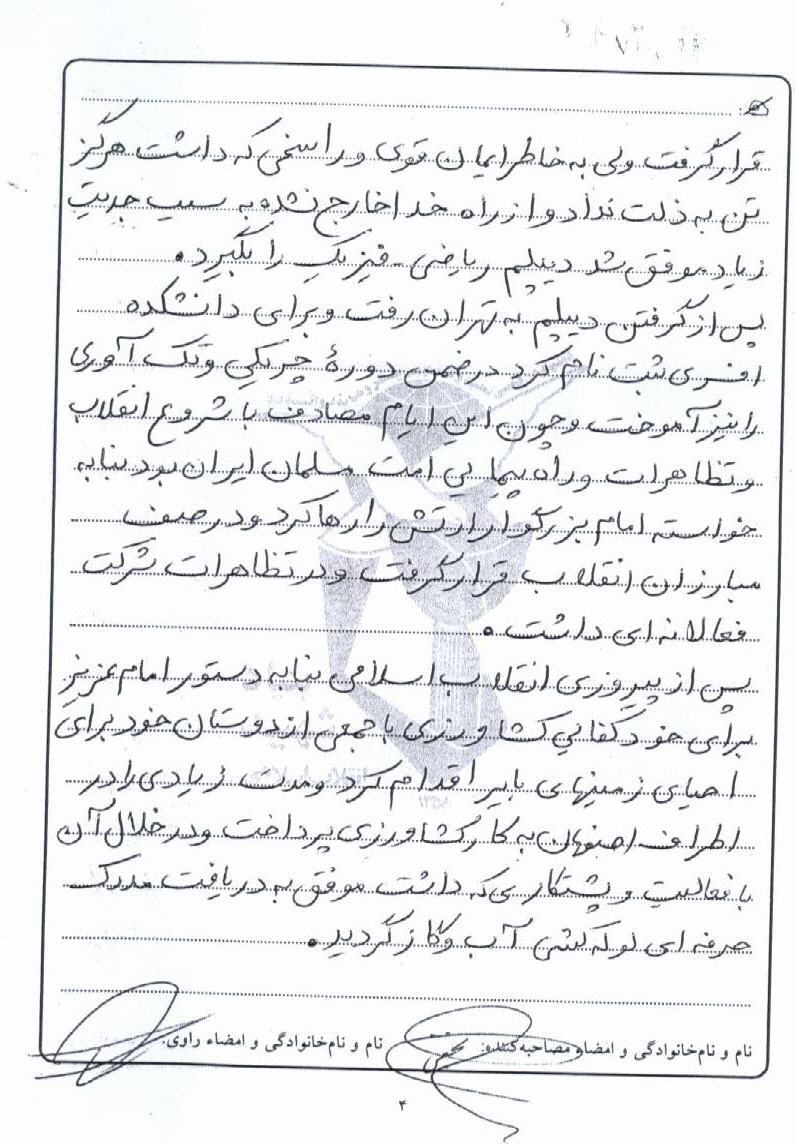 قرار گرفت ولی به خاطر ایمان قوی و راسخی که داشت هرگز
تن به ذلت نداد و از راه خدا خارج نشد و به سبب جدیت
زیاد موفق شد دیپلم ریاضی فیزیک را بگیرد.
پس از گرفتن دیپلم به تهران رفت و برای دانشکده
افسری ثبت نام کرد در ضمن دورهٔ چریکی و تک آوری
را نیز آموخت و چون این ایام مصادف با شروع انقلاب
و تظاهرات و راه پیمایی امت مسلمان ایران بود بنا به
خواسته امام بزرگوار ارتش را رها کرد و در صف
مبارزان انقلاب قرار گرفت و در تظاهرات شرکت
فعالانه ای داشت.
پس از پیروزی انقلاب اسلامی بنا به دستور امام عزیز
برای خود کفایی کشاورزی با جمعی از دوستان خود برای
احیای زمینهای بایر اقدام کرد و مدت زیادی را در
اطراف اصفهان به کار کشاورزی پرداخت و در خلال آن
با فعالیت و پشتکاری که داشت موفق به دریافت مدرک
حرفه ای لوله کشی آب و گاز گردید.
نام و نام خانوادگی و امضاء مصاحبه کننده: نام و نام خانوادگی و امضاء راوی:
۴